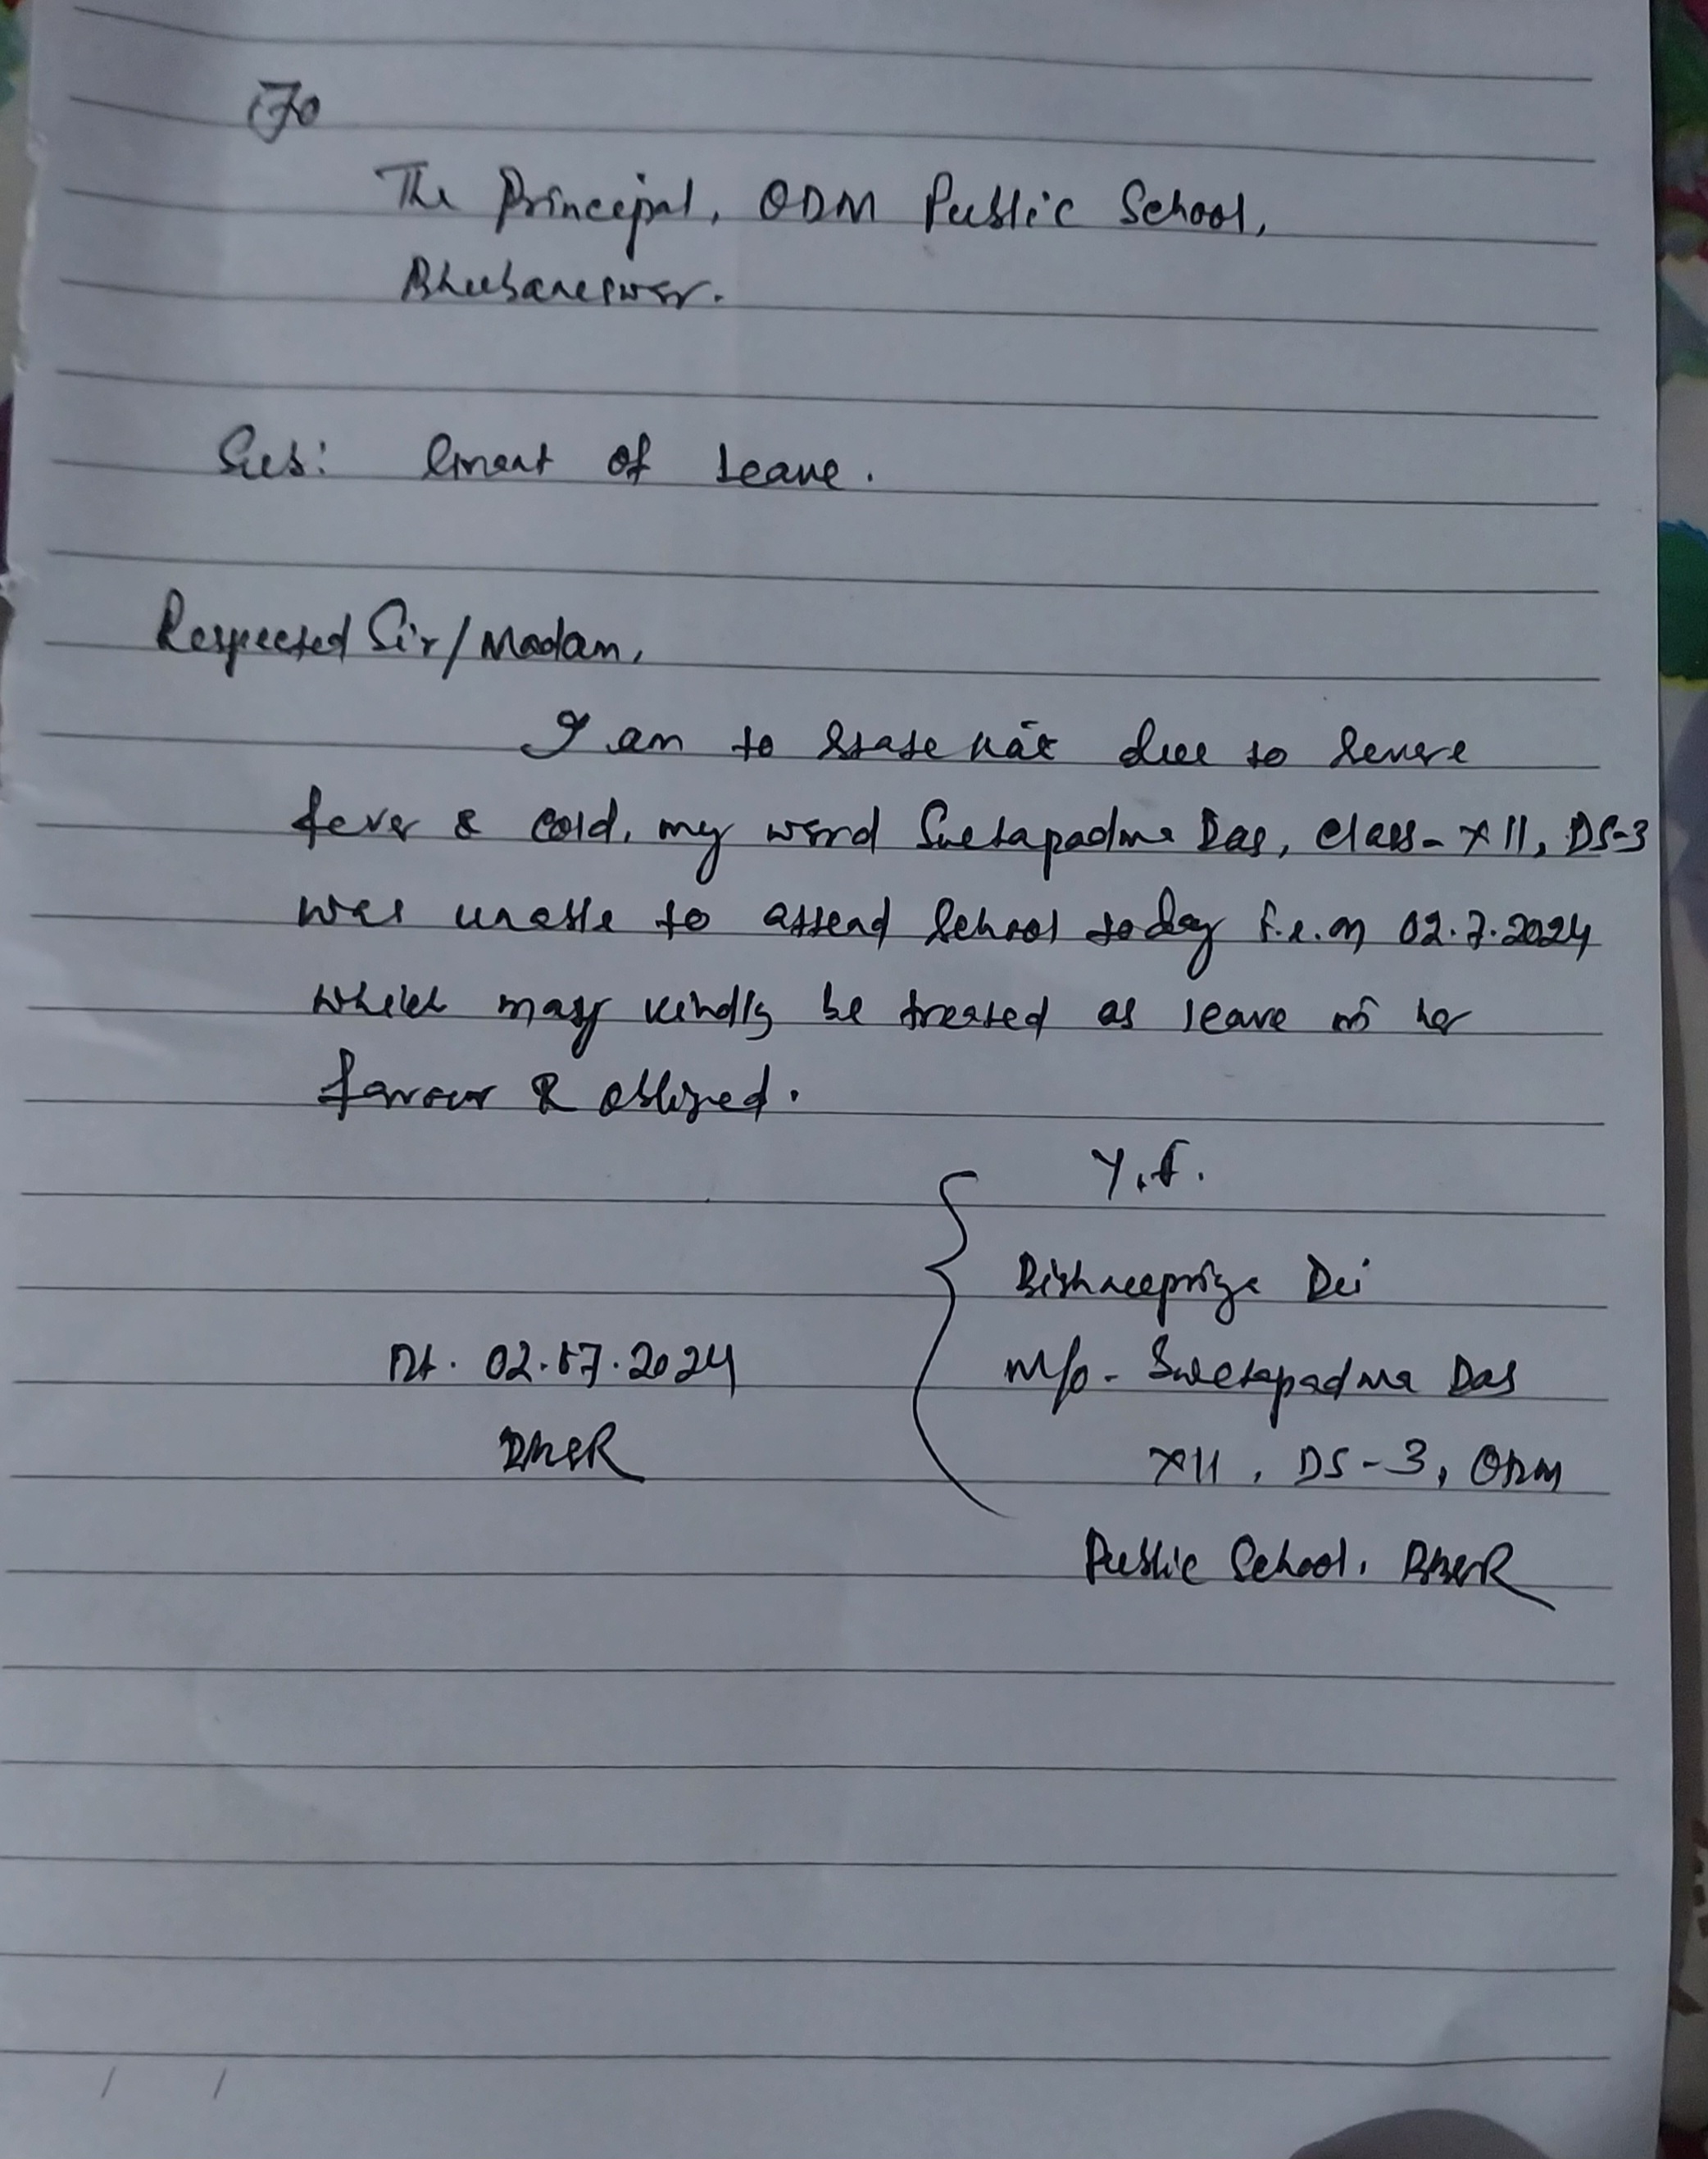 To
The Principal, ODM Public School,
Bhubaneswar.
Sub: Grant of Leave.
Respected Sir/Madam,
I am to state that due to severe
fever & cold, my word Swetapadma Das, Class- XII, DS-3
was unable to attend School today i.e. on 02.7.2024
which may kindly be treated as leave in her
favour & obliged.
Y.f.
Bishnupriya Dei
Dt. 02.07.2024
M/o- Swetapadma Das
BBSR
XII, DS-3, ODM
Public School, BBSR